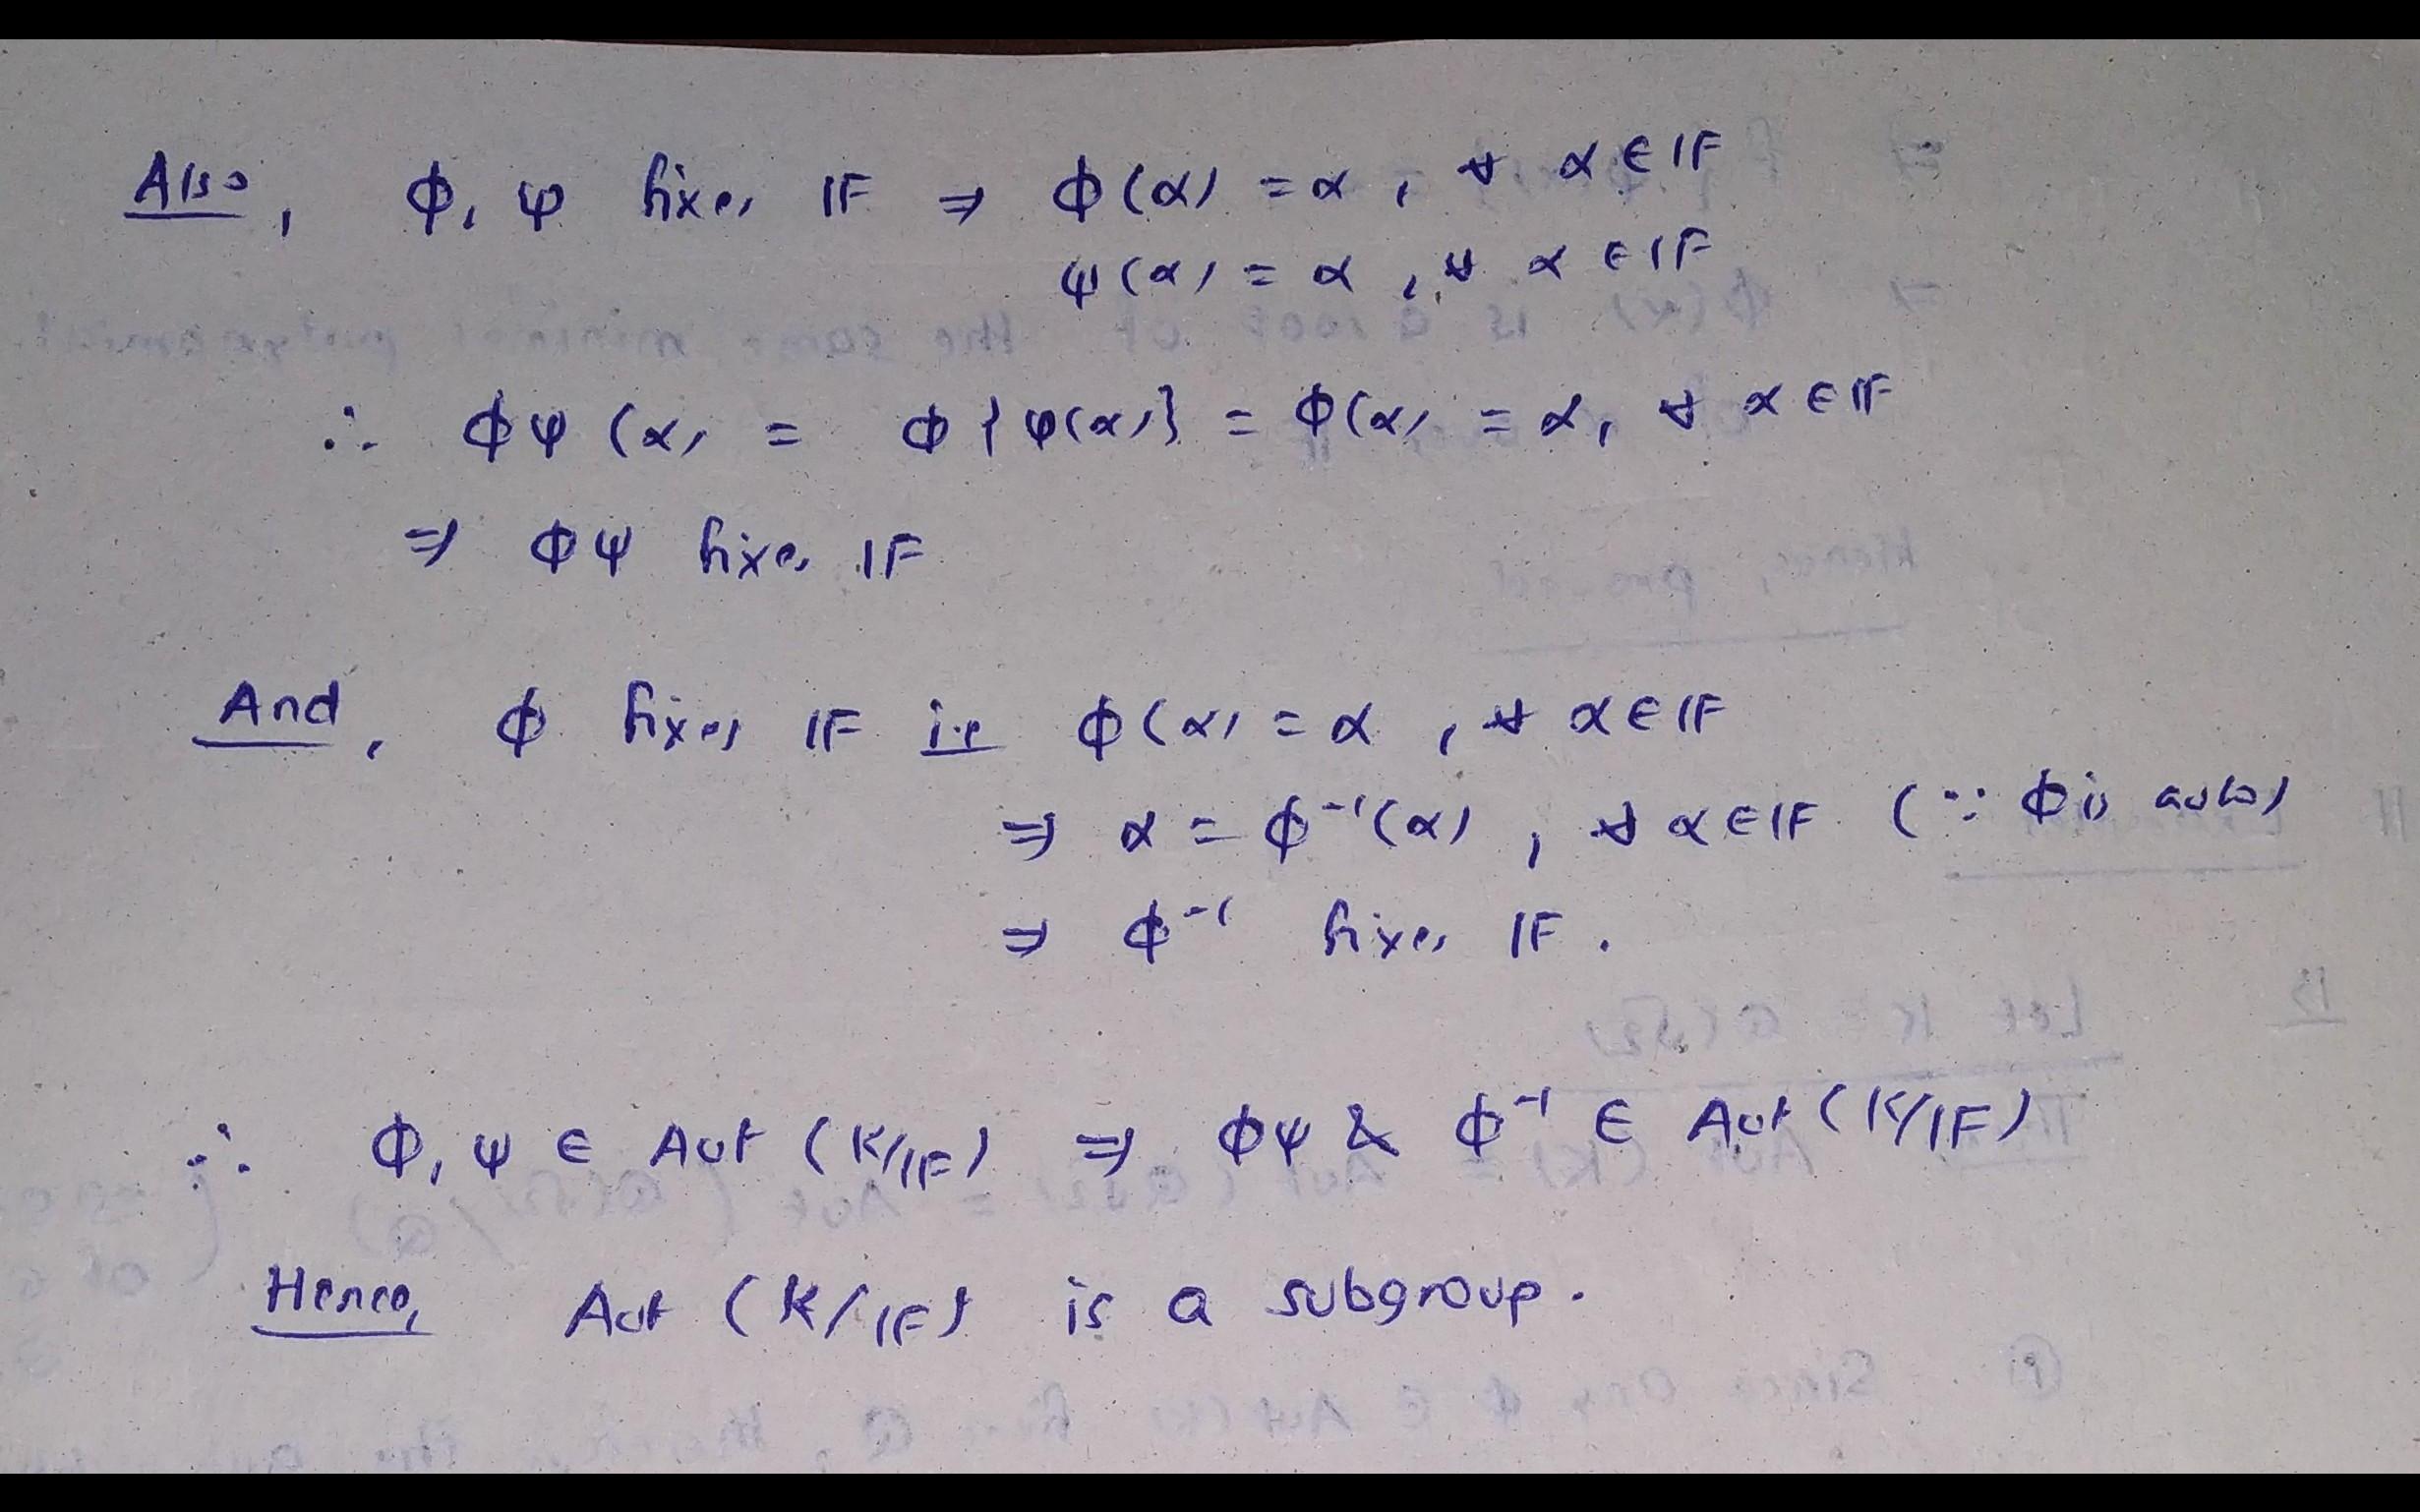 Also, φ, ψ fixes IF ⇒ φ(α) = α, ∀ α ∈ IF
ψ(α) = α, ∀ α ∈ IF
∴ φψ(α) = φ{ψ(α)} = φ(α) = α, ∀ α ∈ IF
⇒ φψ fixes IF
And, φ fixes IF i.e φ(α) = α, ∀ α ∈ IF
⇒ α = φ⁻¹(α), ∀ α ∈ IF (∵ φ is auto)
⇒ φ⁻¹ fixes IF.
∴ φ, ψ ∈ Aut (K/IF) ⇒ φψ & φ⁻¹ ∈ Aut (K/IF)
Hence, Aut (K/IF) is a subgroup.